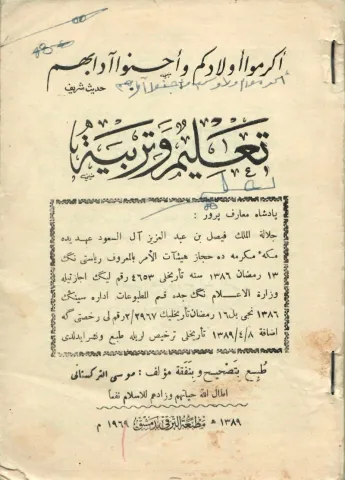 أكرموا أولادكم وأحسنوا آدابهم
حديث شريف
تعليم وتربية
پادشاه معارف پرور :
جلالة الملك فيصل بن عبد العزيز آل السعود عهديده
مكهٔ مكرمه ده حجاز هيئات الأمر بالمعروف رياستى نگ
١٣ رمضان ١٣٨٦ سنه تأريخلى ٤٦٥٣ رقم ليگ اجازتيله
وزارة الاعلام نگ جده قسم المطبوعات اداره سينگ
١٣٨٦ نجى يل ١٦ رمضان تأريخليگ ٢/٢٩٦٧ رقم لى رخصتى گه
اضافة ١٣٨٩/٤/٨ تأريخلى ترخيص لريله طبع ونشر ايدلدى
طبع بتصحيح وبنفقة مؤلف : موسى التركستانى
اطال الله حياتهم وزادهم للاسلام نفعا
١٣٨٩ هـ مطبعة الترقي بدمشق ١٩٦٩ م